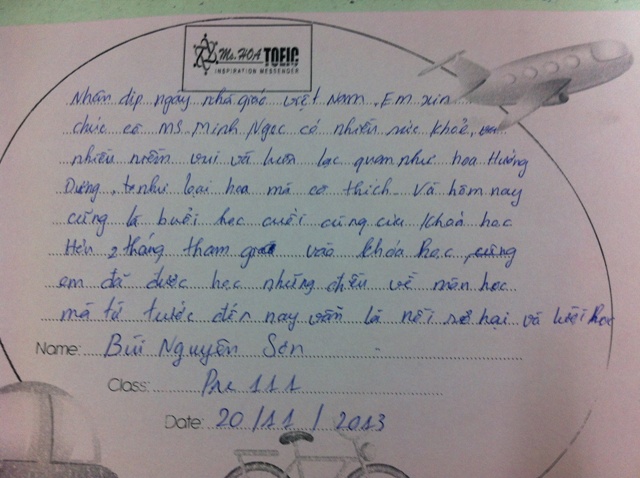 Ms. HOA TOEIC
INSPIRATION MESSENGER
Nhân dịp ngày nhà giáo việt Nam. Em xin
chúc cô Ms Minh Ngọc có nhiều sức khoẻ, và
nhiều niềm vui và luôn lạc quan như hoa Hướng
Dương, như loại hoa mà cô thích. Và hôm nay
cũng là buổi học cuối cùng của khoá học
Hơn 2 tháng tham gia vào khóa học, cũng
em đã được học những điều về môn học
mà từ trước đến nay vẫn là nỗi sợ hại và lười học
Name: Bùi Nguyên Sơn
Class: Pre 111
Date: 20/11/2013